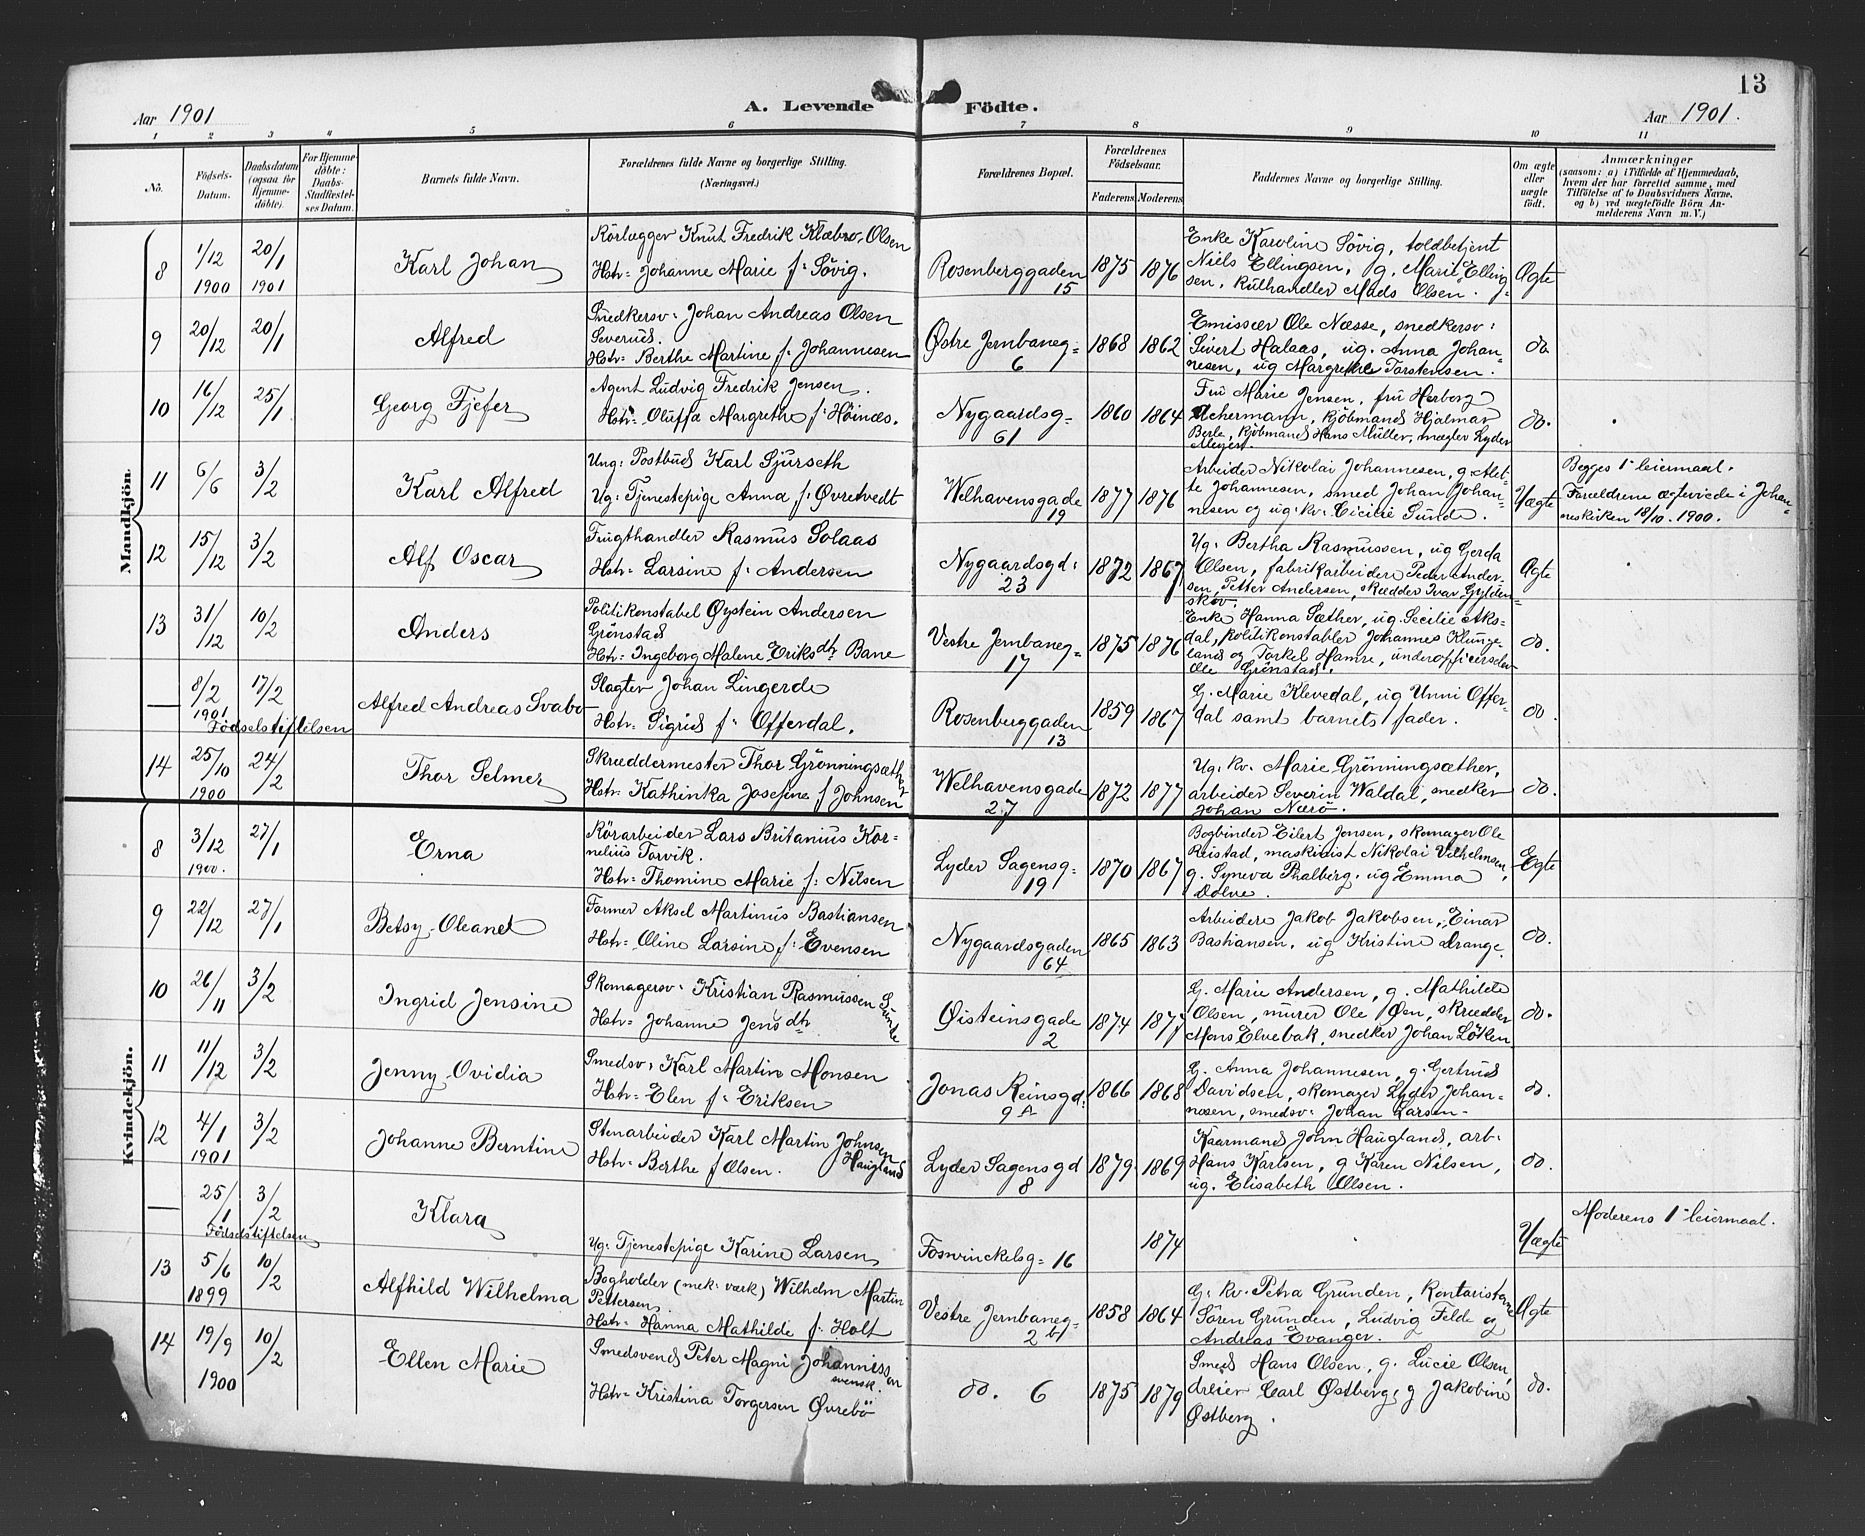 13
Aar 1901
A. Levende Födte.
Aar 1901.
1 2 3 4 5 6 7 8 9 10 11
No.
Födsels-Datum.
Daabsdatum (ogsaa for Hjemme-döbte).
For Hjemme-döbte: Daabs-Stadfæstel-ses Datum.
Barnets fulde Navn.
Forældrenes fulde Navne og borgerlige Stilling. (Næringsvei.)
Forældrenes Bopæl.
Forældrenes Födselsaar.
Faderens Moderens
Faddernes Navne og borgerlige Stilling.
Om ægte eller uægte födt.
Anmærkninger
(saasom: a) i Tilfælde af Hjemmedaab,
hvem der har forrettet samme, med
Tilföielse af to Daabsvidners Navne.
og b) ved uægtefödte Börn An-
melderens Navn m. V.)
Mandkjön.
8
1/12 1900
20/1 1901
Karl Johan
Rörlægger Knut Fredrik Klæbo, Olsen
Hstr= Johanne Marie f: Sövig.
Rosenberggaden 15
1875 1876
Enke Karoline Sövig, toldbetjent
Niels Ellingsen, g. Marit Elling-
sen, kulhandler Mads Olsen.
Ægte
9
20/12
20/1
Alfred
Snedkersv: Johan Andreas Olsen
Severud.
Hstr= Berthe Martine f: Johannesen
Østre Jernbaneg= 6
1868 1862
Emissær Ole Næsse, snedkersv:
Sivert Halaas, ug. Anna Johan-
nesen, ug Margrethe Torstensen.
do.
10
16/12
25/1
Georg Fjefer
Agent Ludvig Fredrik Jensen.
Hstr= Oluffa Margrethe f: Höinæs.
Nygaardsg= 61
1860 1864
Fru Marie Jensen, fru Herborg
Achermann, Kjöbmand Hjalmar
Berle, Kjöbmand Hans Müller, mægler Lyder
Meyer.
do.
11
6/6
3/2
Karl Alfred
Ung: Postbud Karl Sjurseth
Ug: Tjenestepige Anna f: Øvretvedt
Welhavensgade 19
1877 1876
Arbeider Nikolai Johannesen, g. Alet-
te Johannesen, smed Johan Johan-
nesen og ug. kv. Cicilie Sunde.
Uægte
Begges 1ste leiermaal.
Forældrene ægteviede i Johan-
neskirken 18/10. 1900.
12
15/12
3/2
Alf Oscar
Frugthandler Rasmus Solaas
Hstr= Larsine f: Andersen
Nygaardsgd: 23
1872 1867
Ug: Bertha Rasmussen, ug Gerda
Olsen, fabrikarbeidere Peder Ander-
sen, Petter Andersen, skrædder Ivar Gylden-
skov.
Ægte
13
31/12
10/2
Anders
Politikonstabel Øystein Andersen
Grönstad
Hstr= Ingeborg Malene Eriksdtr Bane
Vestre Jernbaneg= 17
1875 1876
Enke Hanna Sæther, ug. Secilie Aks-
dal, politikonstabler Johannes Klunge-
land og Torkel Hamre, underofficerselev
Ole Grönstad.
do.
—
8/2 1901
17/2
Födselstiftelsen
Alfred Andreas Svabo
Slagter Johan Lingerde
Hstr= Sigrid f: Offerdal.
Rosenberggaden 13
1859 1867
G. Marie Klevedal, ug Unni Offer-
dal samt barnets fader.
do.
14
25/10 1900
24/2
Thor Selmer
Skræddermester Thor Grönningsæther
Hstr= Kathinka Josefine f Johnsen
Welhavensgade 27
1872 1877
Ug. kv. Marie Grönningsæther,
arbeider Severin Waldal, snedker
Johan Nærö.
do.
Kvindekjön.
8
3/12 1900.
27/1
Erna
Rörarbeider Lars Britanius Kor=
nelius Torvik.
Hstr= Thomine Marie f: Nilsen
Lyder Sagensg= 19
1870 1867
Bogbinder Eilert Jensen, skomager Ole
Reistad, maskinist Nikolai Vilhelmsen,
g. Syneva Thalberg, ug Emma
Dolve.
Egte
9
22/12
27/1
Betsy Oleanet
Former Aksel Martinus Bastiansen
Hstr= Oline Larsine f: Evensen
Nygaardsgaden 64
1865 1863
Arbeidere Jakob Jakobsen, Einar
Bastiansen, ug Kristine Drange.
do.
10
26/11
3/2
Ingrid Jensine
Skomagersv. Kristian Rasmussen Sunde
Hstr= Johanne Jensdtr
Øisteinsgade 2
1874 1877
G. Marie Andersen, g. Mathilde
Olsen, murer Ole Øen, skrædder
Mons Elvebak, snedker Johan Löken
do.
11
11/12
3/2
Jenny Ovidia
Smedsv: Karl Martin Monsen
Hstr= Elen f: Eriksen
Jonas Reinsgd: 9 A
1866 1868
G. Anna Johannesen, g. Gertrud
Davidsen, skomager Lyder Johan-
nesen, smedsv: Johan Larsen.
do.
12
4/1 1901
3/2
Johanne Berntine
Stenarbeider Karl Martin Johnsen
Haugland
Hstr= Berthe f Olsen.
Lyder Sagensgd 8
1879 1869
Kaarmand John Haugland, arb:
Hans Karlsen, g Karen Nilsen,
ug. Elisabeth Olsen.
do.
—
25/1
3/2
Födselstiftelsen
Klara
Ug: Tjenestepige Karine Larsen
Foswinckelsg= 16
1874
Uægte
Moderens 1ste leiermaal.
13
5/6 1899
10/2
Alfhild Wilhelma
Bogholder (mek: værk) Wilhelm Martin
Pettersen.
Hstr= Hanna Mathilde f: Holt
Vestre Jernbaneg= 2 b
1858 1864
G. kv. Petra Grunden, Kontoristerne
Sören Grunden, Ludvig Felde og
Andreas Evanger.
Ægte
14
19/9 1900
10/2
Ellen Marie
Smedsvend Peter Magni Johannisson
svensk.
Hstr= Kristina Torgersen Øvrebö
do. 6
1875 1879
Smed Hans Olsen, g. Lucie Olsen,
dreier Carl Østberg, g Jakobine
Østberg.
do.